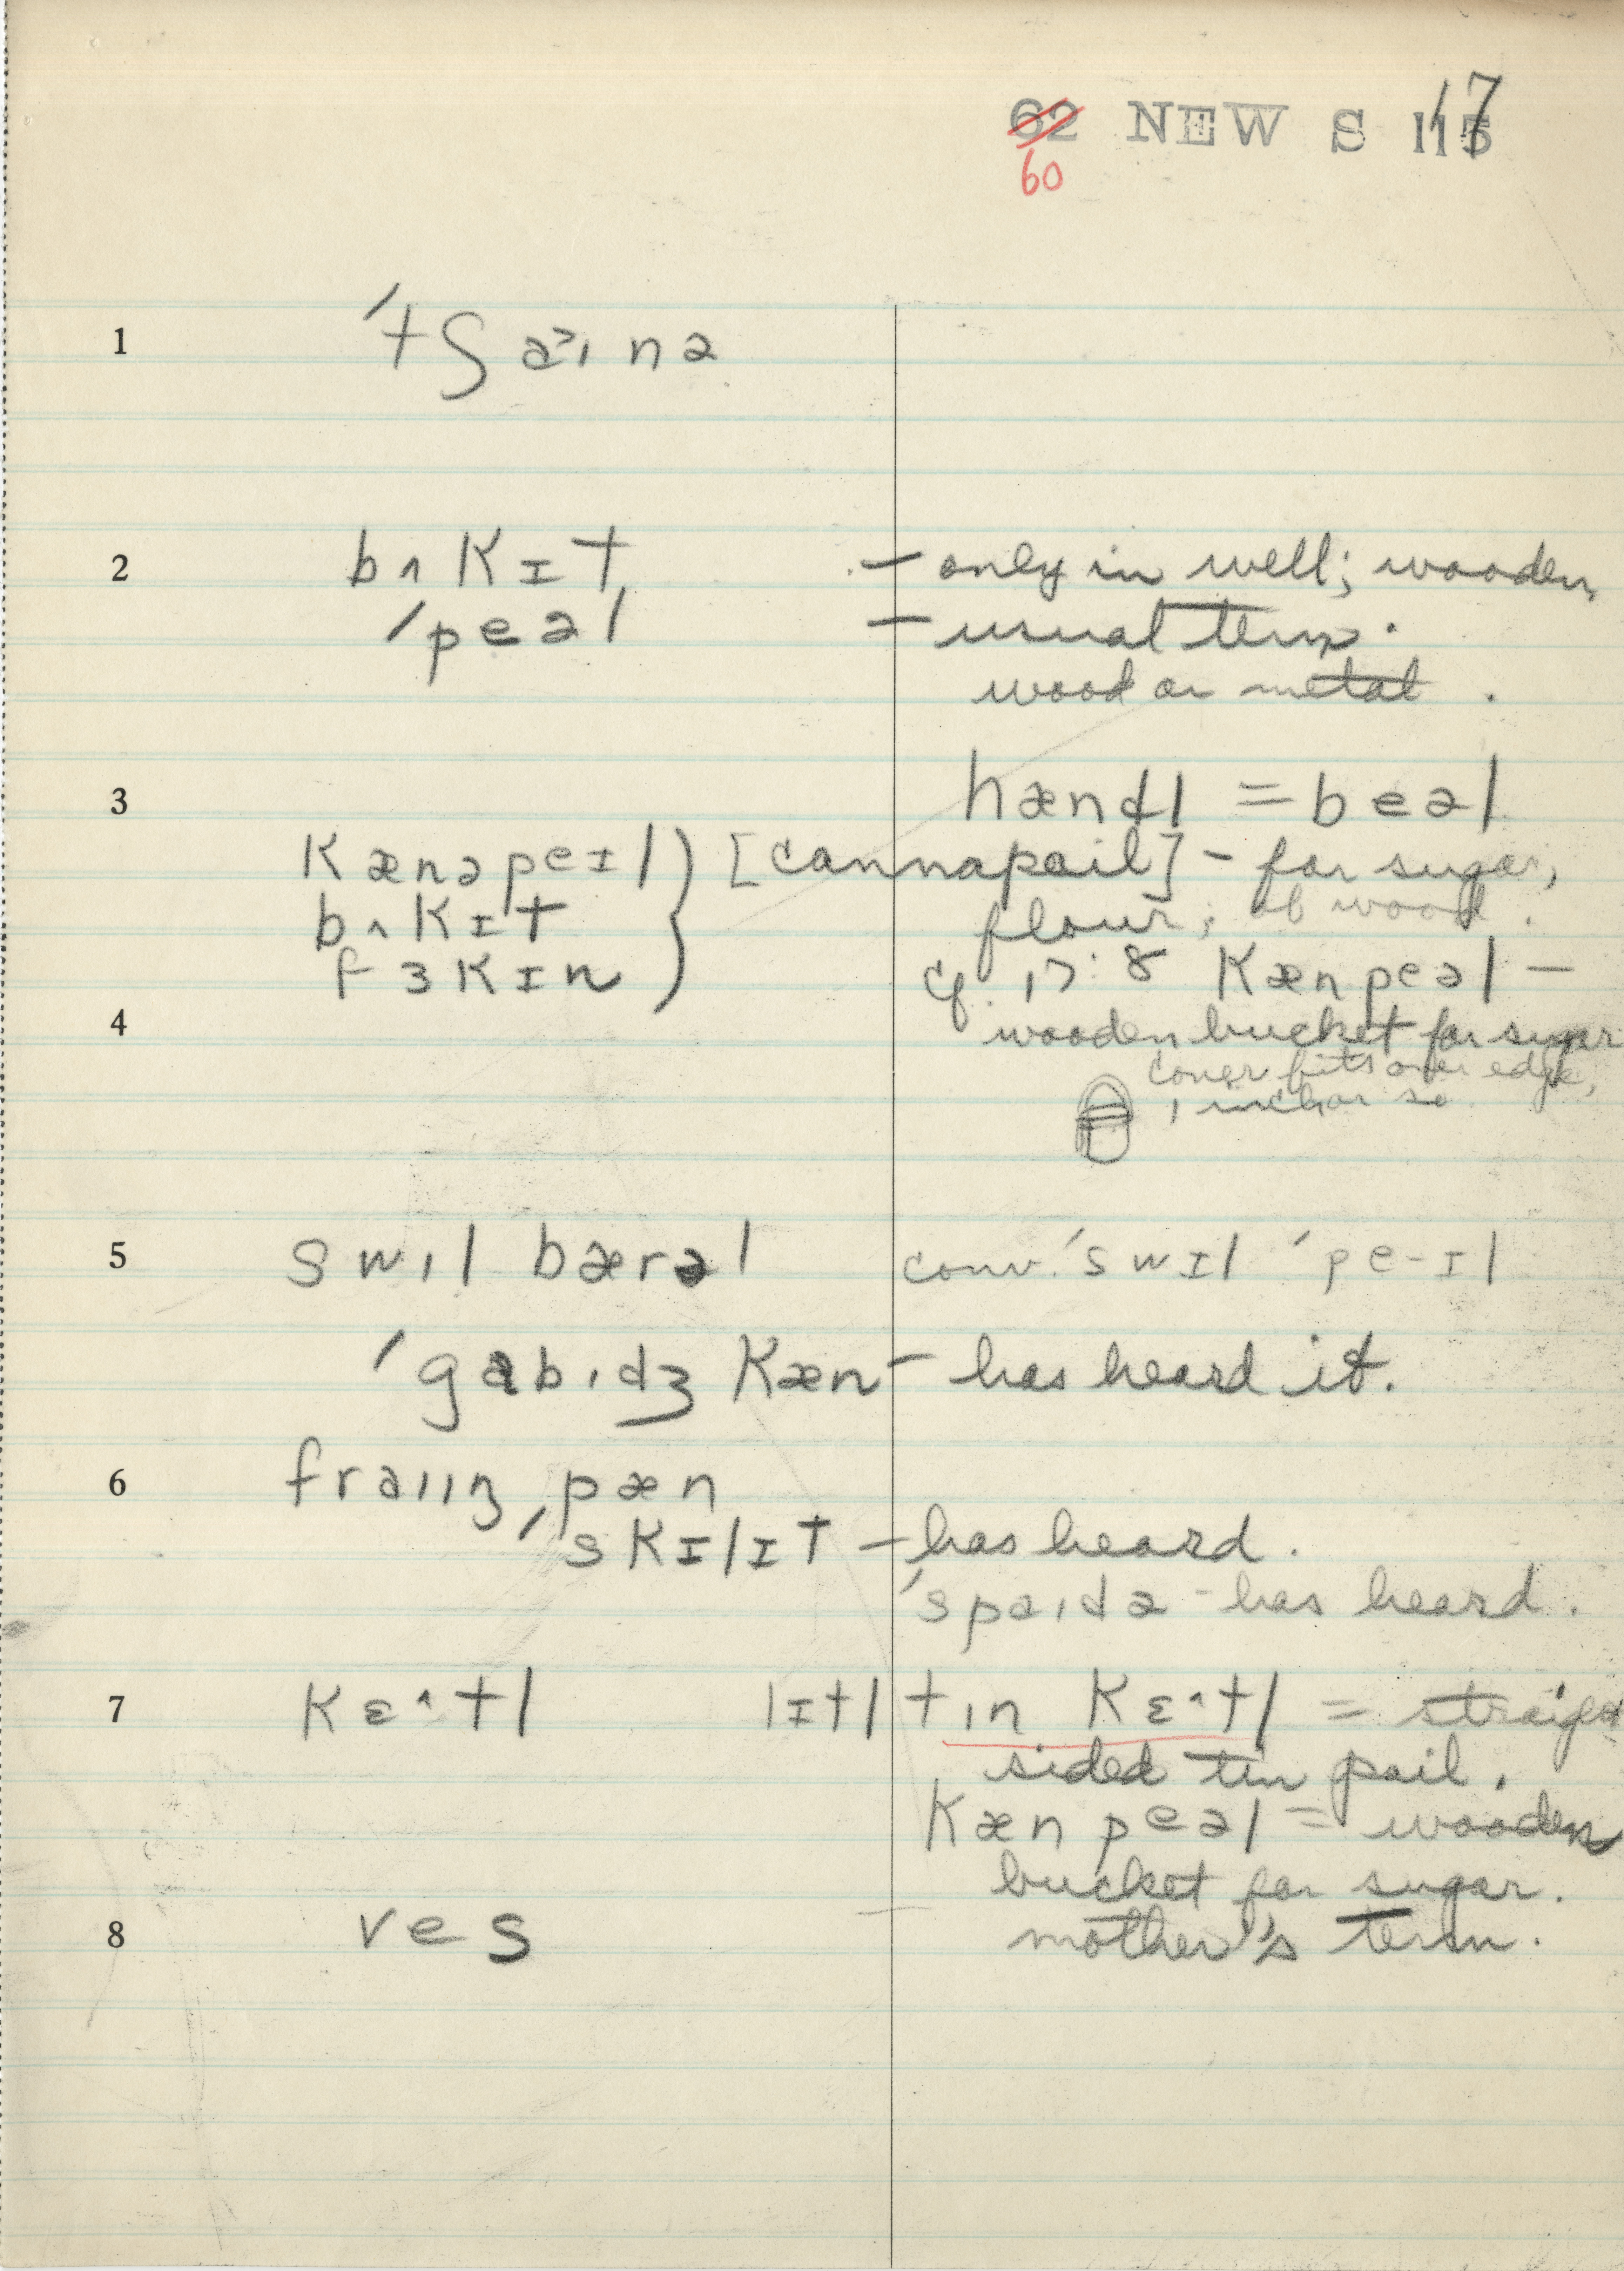 62 NEW S 115 17
60
1 ˈtʃaɪnə
2 bʌkɪt – only in well; wooden
ˈpeəl – usual term.
wood or metal.
3 hændl = beəl
kænəpeɪl [cannapail] – for sugar,
bʌkɪt flour; of wood.
fɜkɪn cf. 17:8 kænpeəl –
4 wooden bucket for sugar
cover fits over edge,
1 inch or so
5 swɪl bærəl conv. ˈswɪl ˈpe-ɪl
ˈgabɪdʒ kæn – has heard it.
6 fraɪɪŋ pæn
ˈskɪlɪt – has heard.
ˈspaɪdə – has heard.
7 kɛ^tl lɪtl tɪn kɛ^tl = straight
sided tin pail.
kæn peəl = wooden
bucket for sugar.
8 ves mother's term.